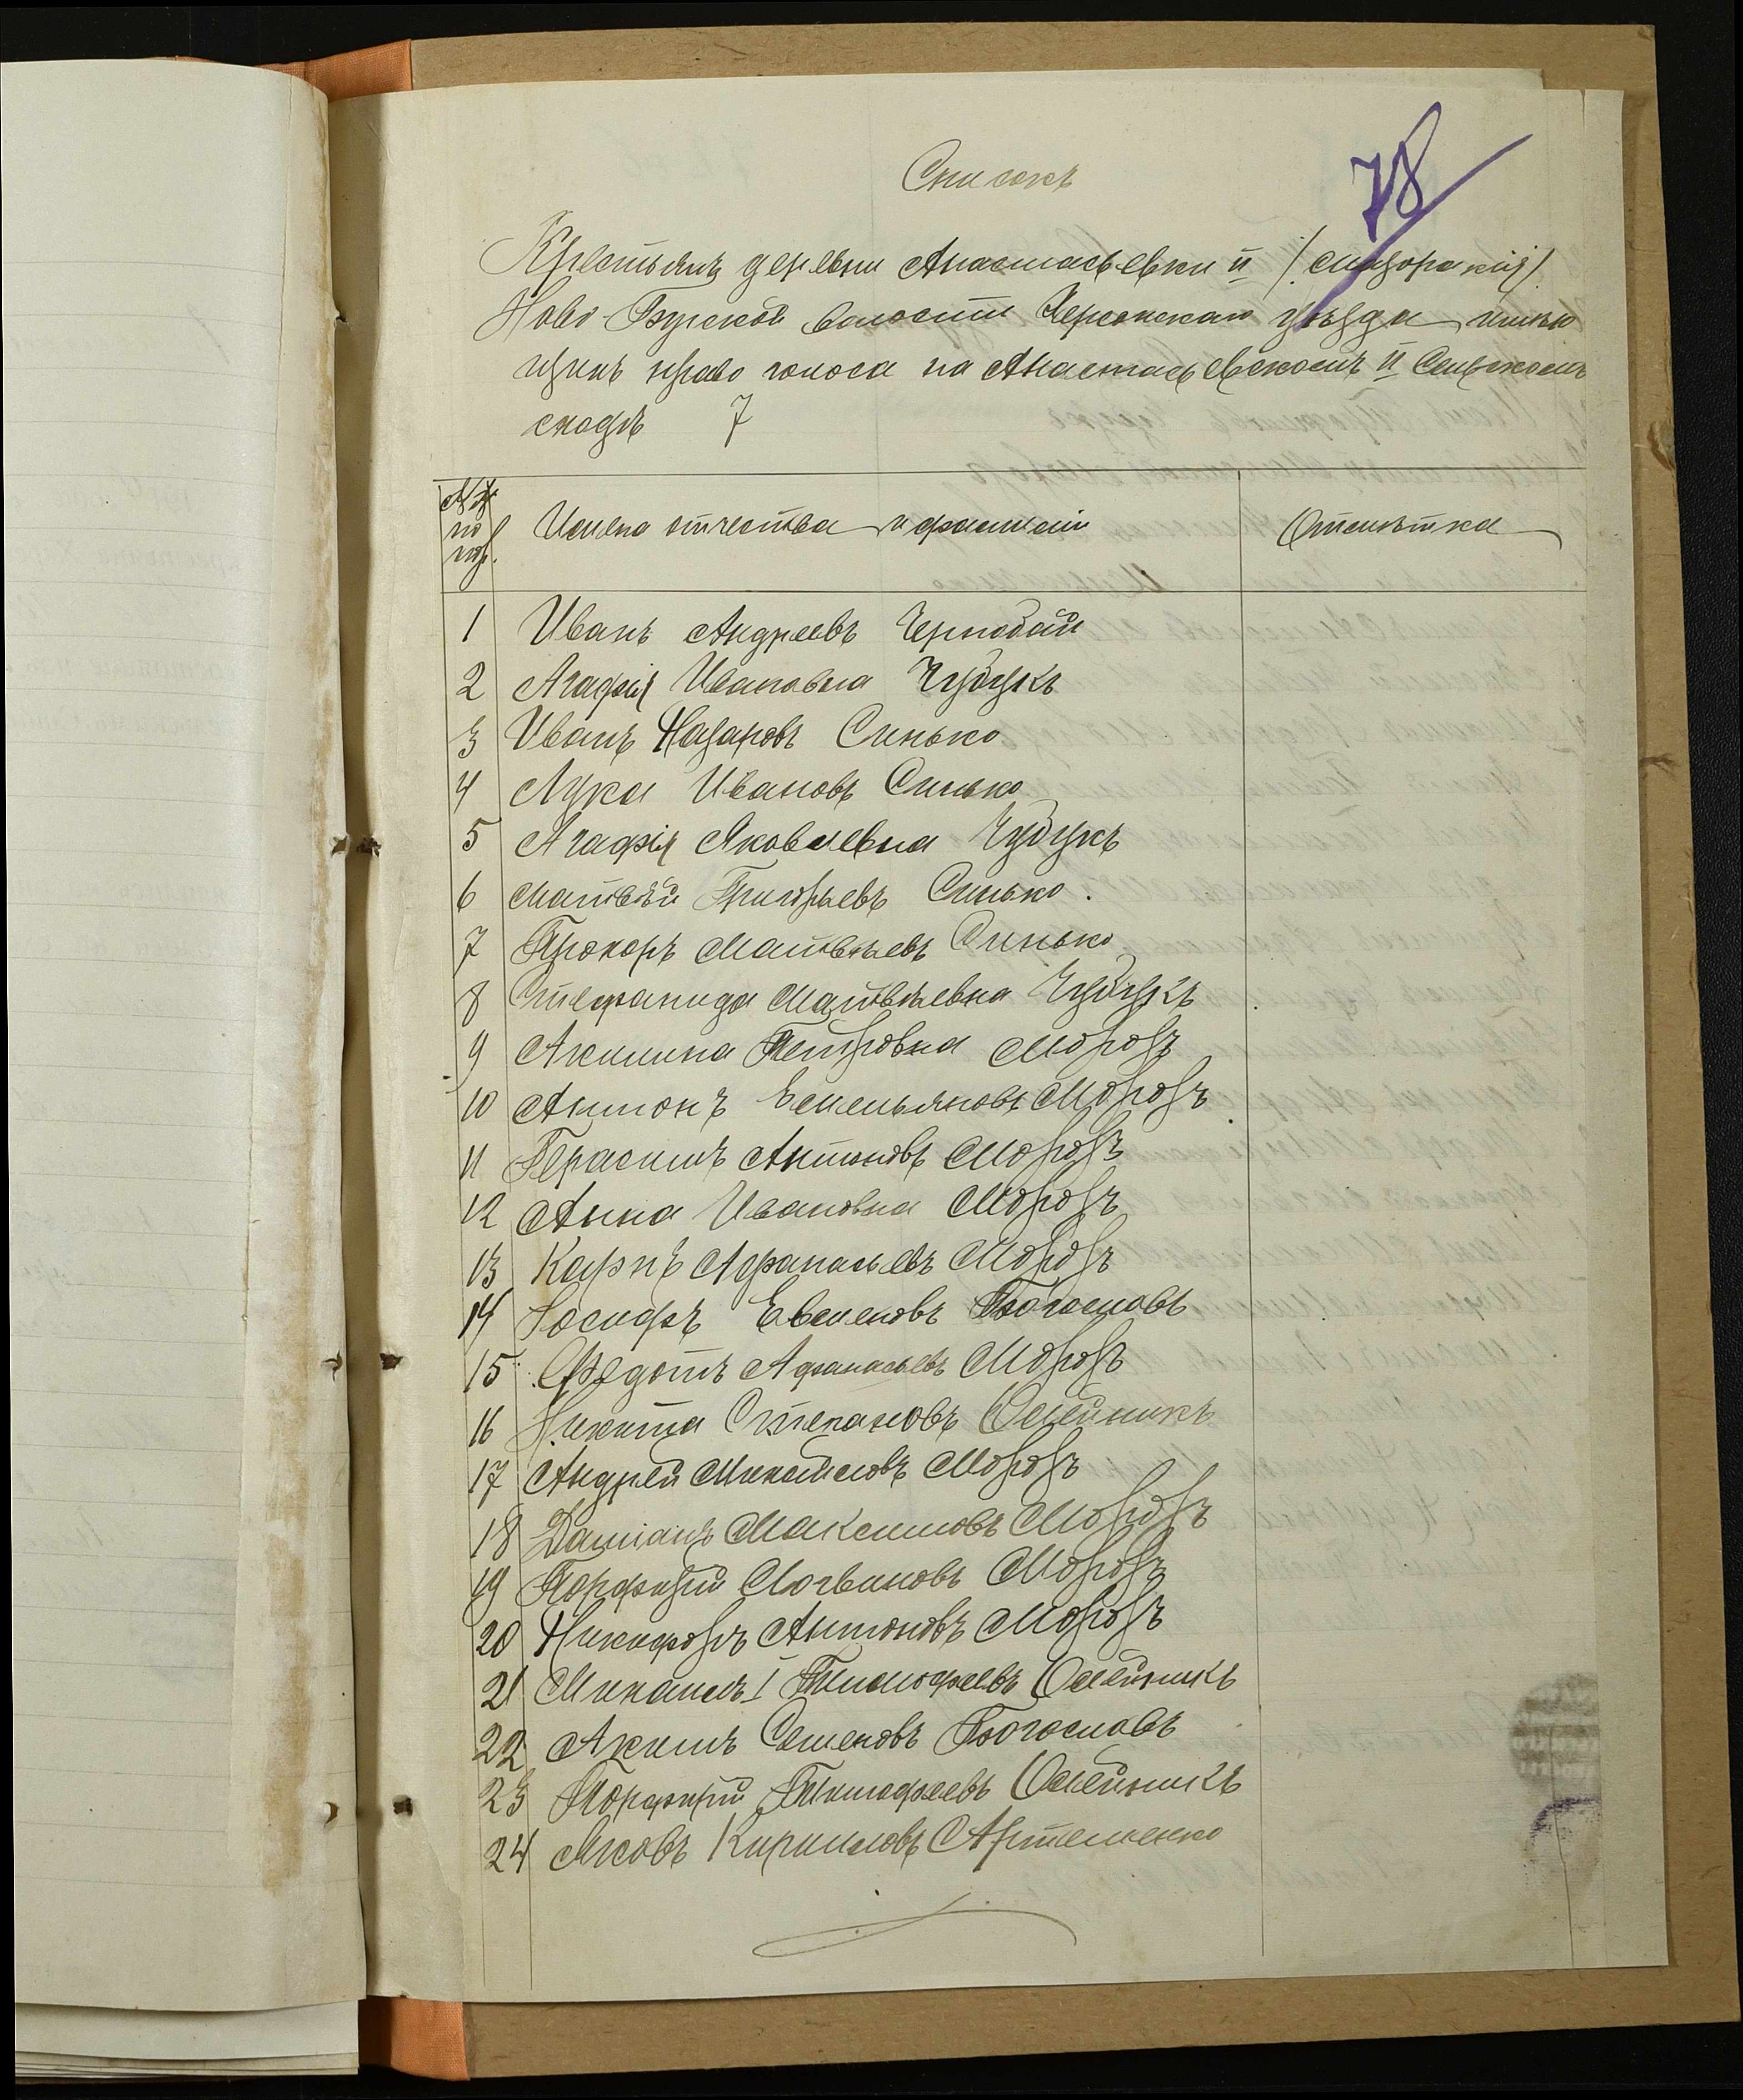 78
Списокъ
Крестьянъ деревни Анастасьевки II /Сидоракія/
Ново-Бугской волости Херсонскаго уѣзда имѣю
щихъ право голоса на Анастасьевскомъ II Сельскомъ
сходѣ 7
№№ по пор.
Имена отчества и фамиліи
Отмѣтка
1 Иванъ Андреевъ Чернобай
2 Агафія Ивановна Чубукъ
3 Иванъ Назаровъ Синько
4 Лука Ивановъ Синько
5 Агафія Яковлевна Чубукъ
6 Матвѣй Григорьевъ Синько.
7 Прохоръ Матвѣевъ Синько
8 Стефанида Матвѣевна Чубукъ
9 Акилина Петровна Морозъ
10 Антонъ Емельяновъ Морозъ
11 Герасимъ Антоновъ Морозъ
12 Анна Ивановна Морозъ
13 Карпъ Афанасьевъ Морозъ
14 Іосифъ Евсеновъ Богославъ
15 Федотъ Афанасьевъ Морозъ
16 Никита Степановъ Олейникъ
17 Андрей Михайловъ Морозъ
18 Даміанъ Максимовъ Морозъ
19 Порфирій Логвиновъ Морозъ
20 Никифоръ Антоновъ Морозъ
21 Михаилъ I Тимофеевъ Олейникъ
22 Акимъ Семеновъ Богославъ
23 Порфирій Тимофеевъ Олейникъ
24 Яковъ Кириловъ Артеменко